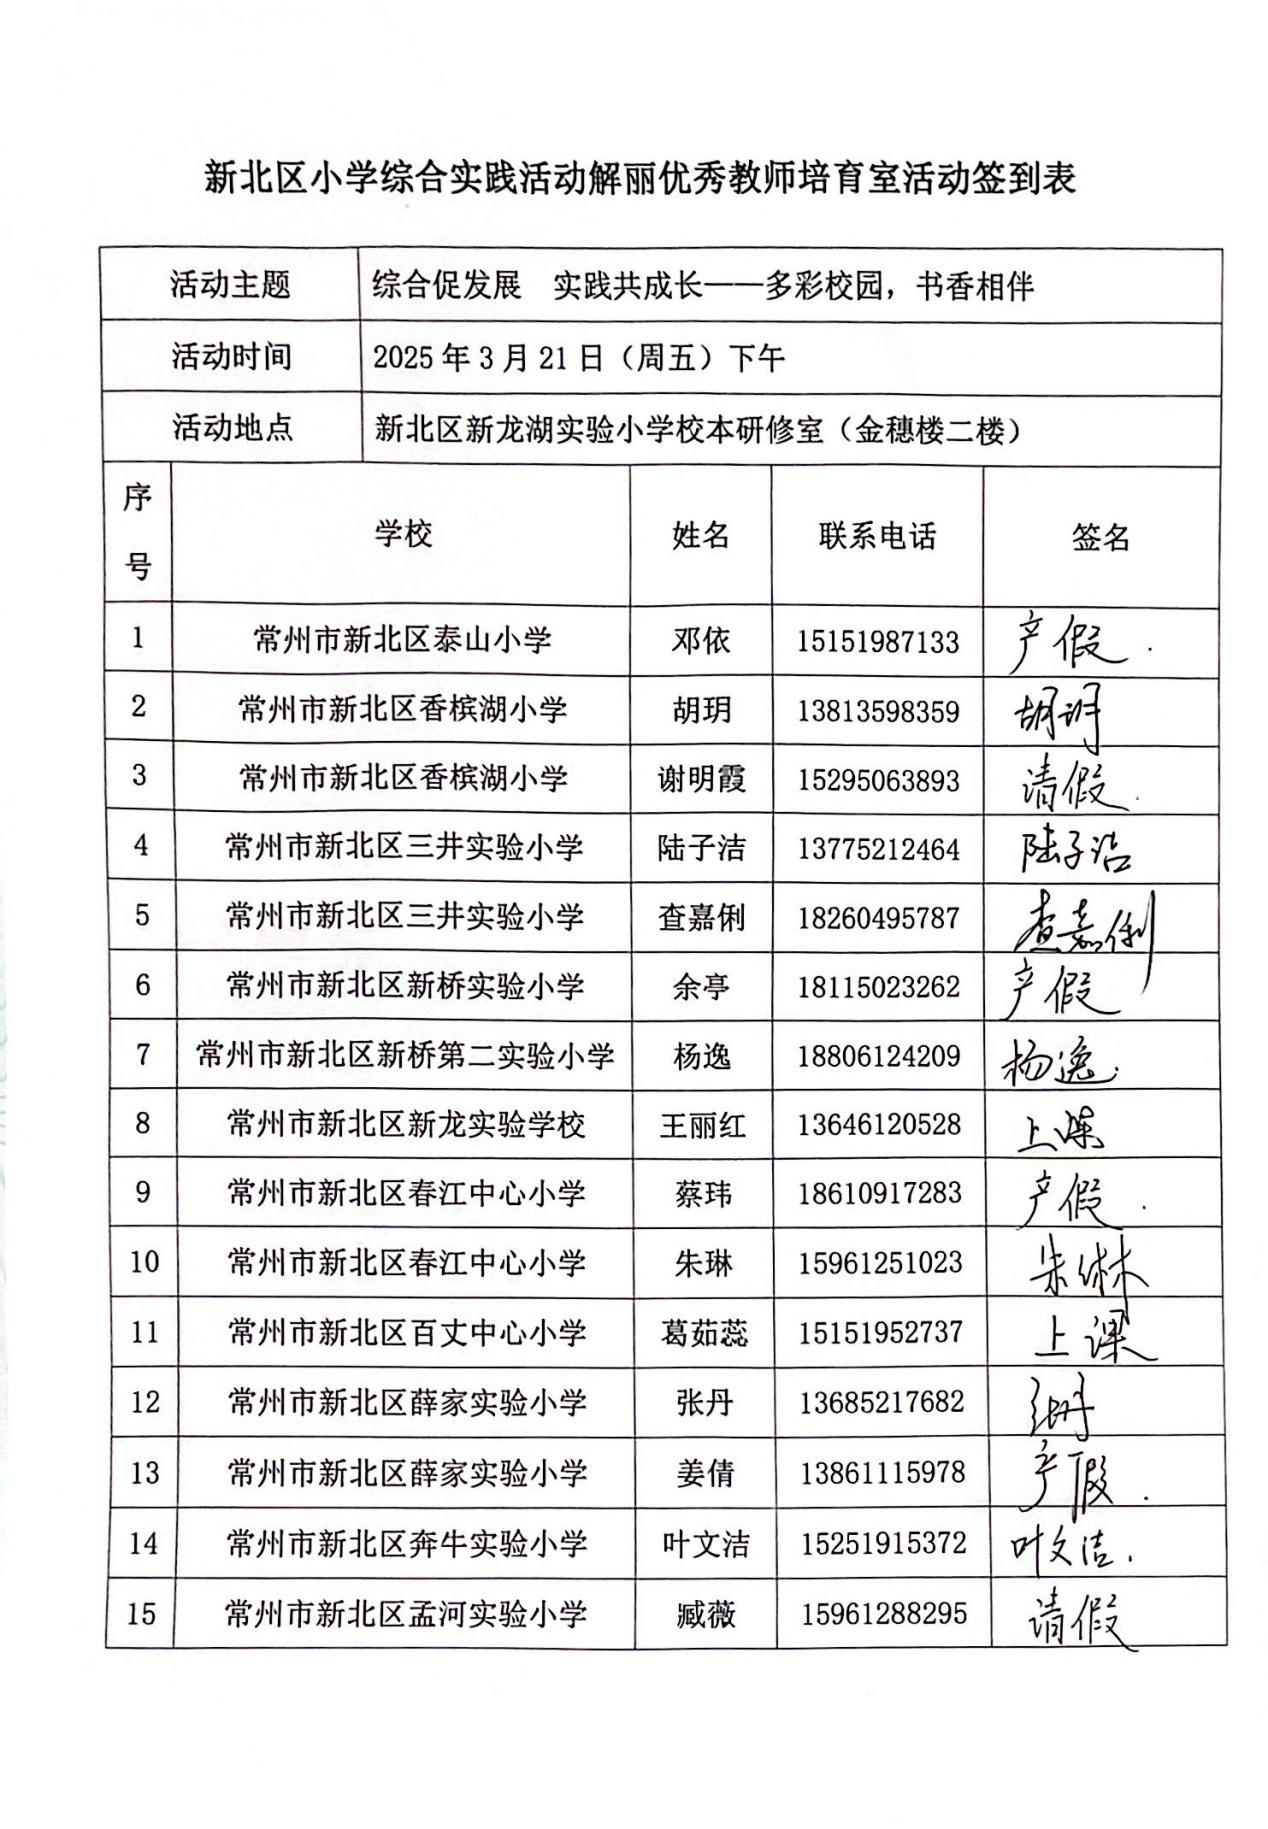 新北区小学综合实践活动解丽优秀教师培育室活动签到表
活动主题 综合促发展 实践共成长——多彩校园，书香相伴
活动时间 2025年3月21日（周五）下午
活动地点 新北区新龙湖实验小学校本研修室（金穗楼二楼）
序号 学校 姓名 联系电话 签名
1 常州市新北区泰山小学 邓依 15151987133 产假.
2 常州市新北区香槟湖小学 胡玥 13813598359 胡玥
3 常州市新北区香槟湖小学 谢明霞 15295063893 请假.
4 常州市新北区三井实验小学 陆子洁 13775212464 陆子洁
5 常州市新北区三井实验小学 查嘉俐 18260495787 查嘉俐
6 常州市新北区新桥实验小学 余亭 18115023262 产假
7 常州市新北区新桥第二实验小学 杨逸 18806124209 杨逸.
8 常州市新北区新龙实验学校 王丽红 13646120528 上课
9 常州市新北区春江中心小学 蔡玮 18610917283 产假.
10 常州市新北区春江中心小学 朱琳 15961251023 朱琳
11 常州市新北区百丈中心小学 葛茹蕊 15151952737 上课
12 常州市新北区薛家实验小学 张丹 13685217682 张丹
13 常州市新北区薛家实验小学 姜倩 13861115978 产假.
14 常州市新北区奔牛实验小学 叶文洁 15251915372 叶文洁.
15 常州市新北区孟河实验小学 臧薇 15961288295 请假